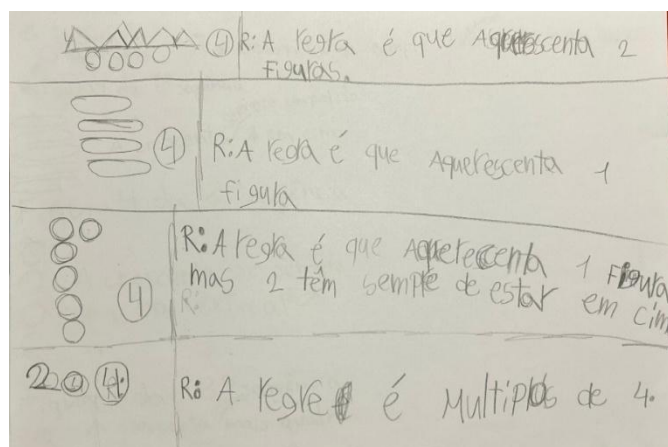 ④ R: A regra é que Aquerescenta 2
figuras.
④ R: A regra é que Aquerescenta 1
figura
④ R: A regra é que Aquerescenta 1 Figura
mas 2 têm sempre de estar em cim
R:
④ R: A regre é Multiplos de 4.